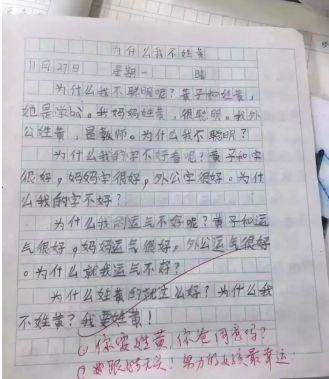 为什么我不姓黄
11月27日 星期一 晴
为什么我不聪明呢？黄子和姓黄，
她是学bà。我妈妈姓黄，很聪明。我外
公姓黄，是教师。为什么我不聪明？
为什么我的字不好看呢？黄子和字
很好，妈妈字很好，外公字很好。为什
么我的字不好？
为什么我的运气不好呢？黄子和运
气很好，妈妈运气很好，外公运气很好
。为什么就我运气不好？
为什么姓黄的就这么好？为什么我
不姓黄？我要姓黄！
你要姓黄，你爸同意吗？
跟姓无关！努力的女孩最幸运